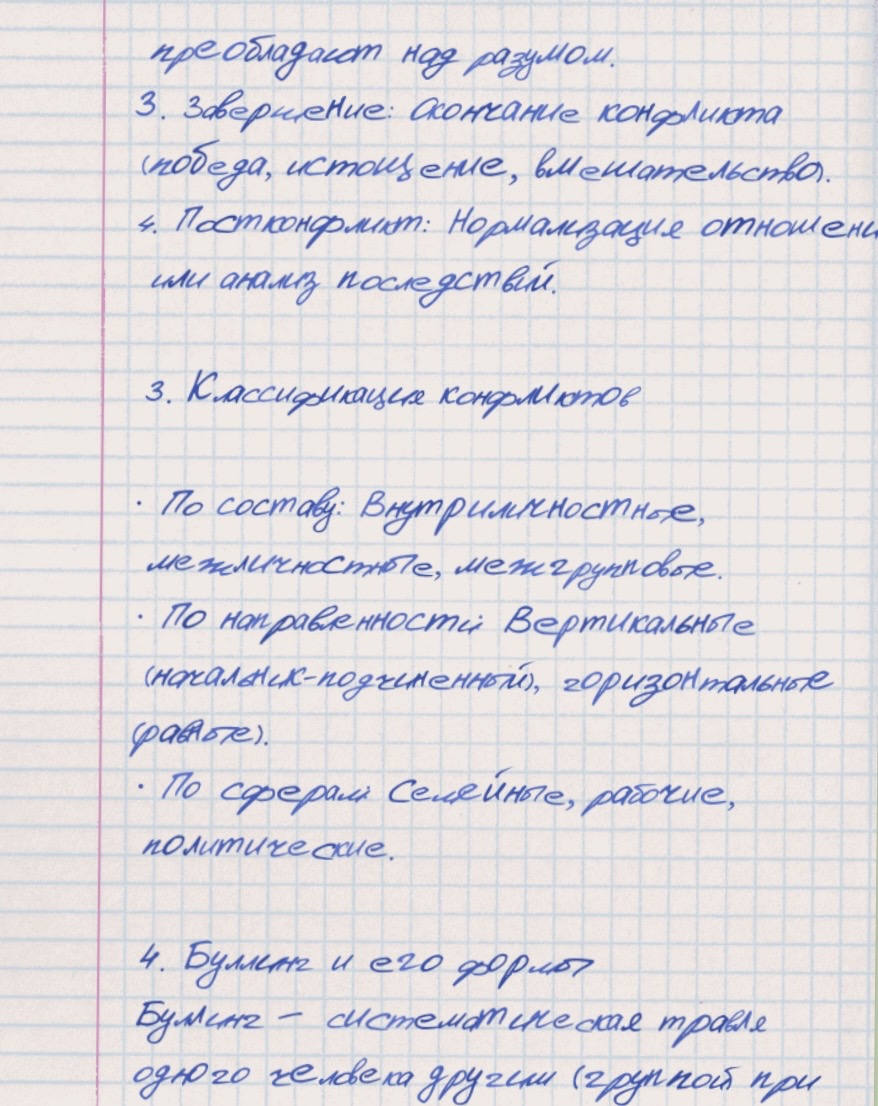 преобладают над разумом.
3. Завершение: Окончание конфликта
(победа, истощение, вмешательство).
4. Постконфликт: Нормализация отношени
или анализ последствий.
3. Классификация конфликтов
· По составу: Внутриличностные,
межличностные, межгрупповые.
· По направленности: Вертикальные
(начальник-подчиненный), горизонтальные
(равные).
· По сферам: Семейные, рабочие,
политические.
4. Буллинг и его формы
Буллинг — систематическая травля
одного человека другим (группой при